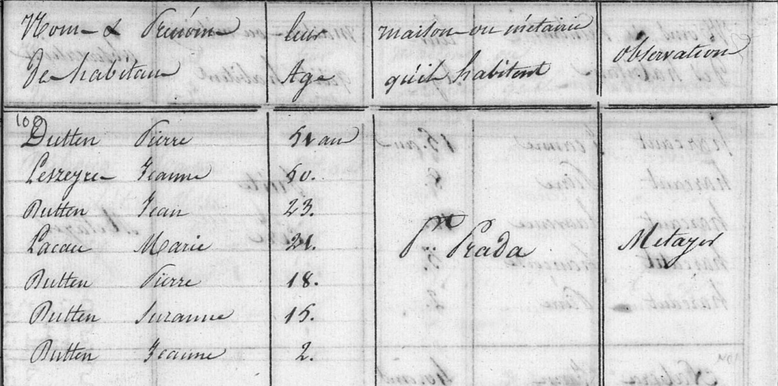 Nom & Prenom leur maison ou metairie observation
De habitans Age qu'il habitent
100
Dutten Pierre 51 an
Jeanne 50.
Dutten Jean 23.
Lacau Marie 21.
Dutten Pierre 18
Dutten Suzanne 15.
Dutten Jeanne 2.
Prada Metayer